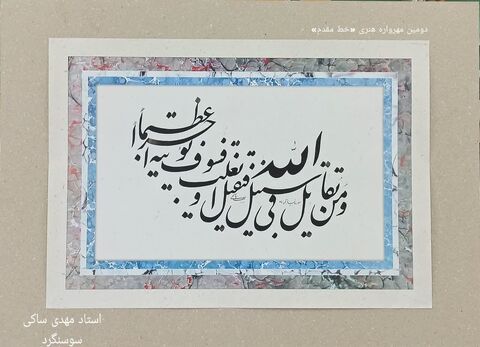 دومین مهرواره هنری «خط مقدم»
ومن یقاتل فی سبیل الله فیقتل او یغلب فسوف نؤتیه اجرا عظیما
استاد مهدی ساکی
سوسنگرد